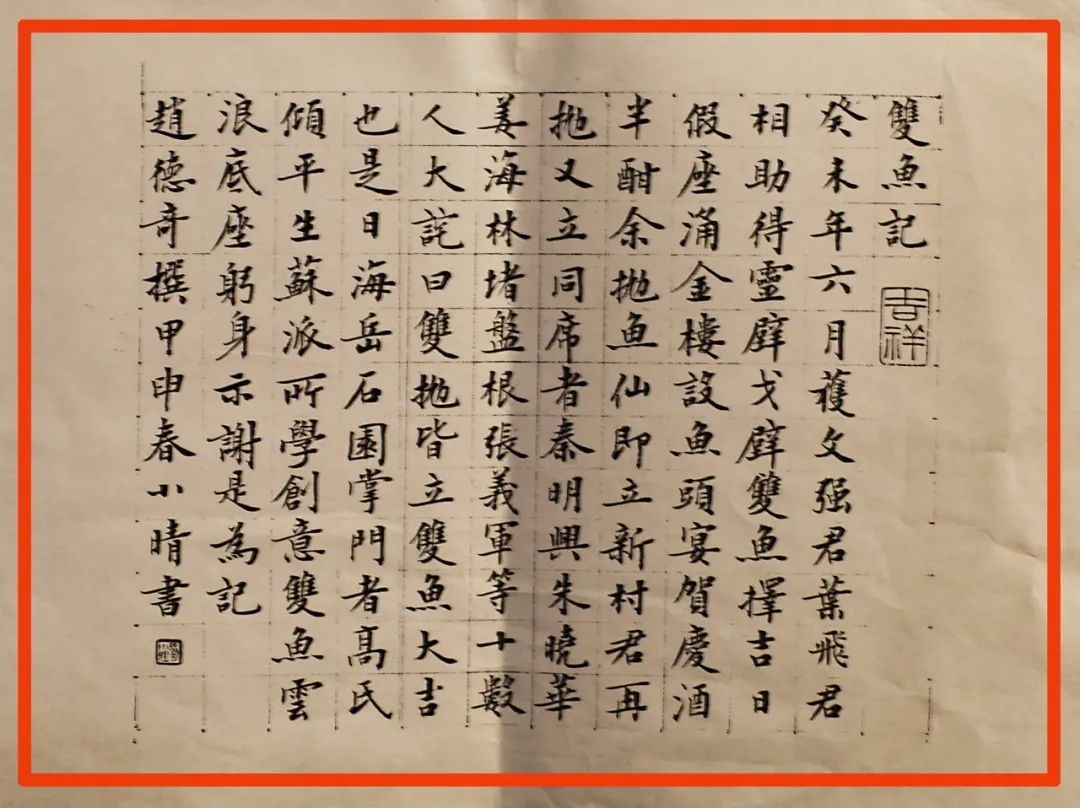 雙魚記
吉祥
癸未年六月獲文强君葉飛君
相助得靈璧戈壁雙魚擇吉日
假座涌金樓設魚頭宴賀慶酒
半酣余抛魚仙即立新村君再
抛又立同席者秦明興朱曉華
姜海林堵盤根張義軍等十數
人大詫曰雙抛皆立雙魚大吉
也是日海岳石園掌門者高氏
傾平生蘇派所學創意雙魚雲
浪底座躬身示謝是為記
趙德奇撰甲申春小晴書